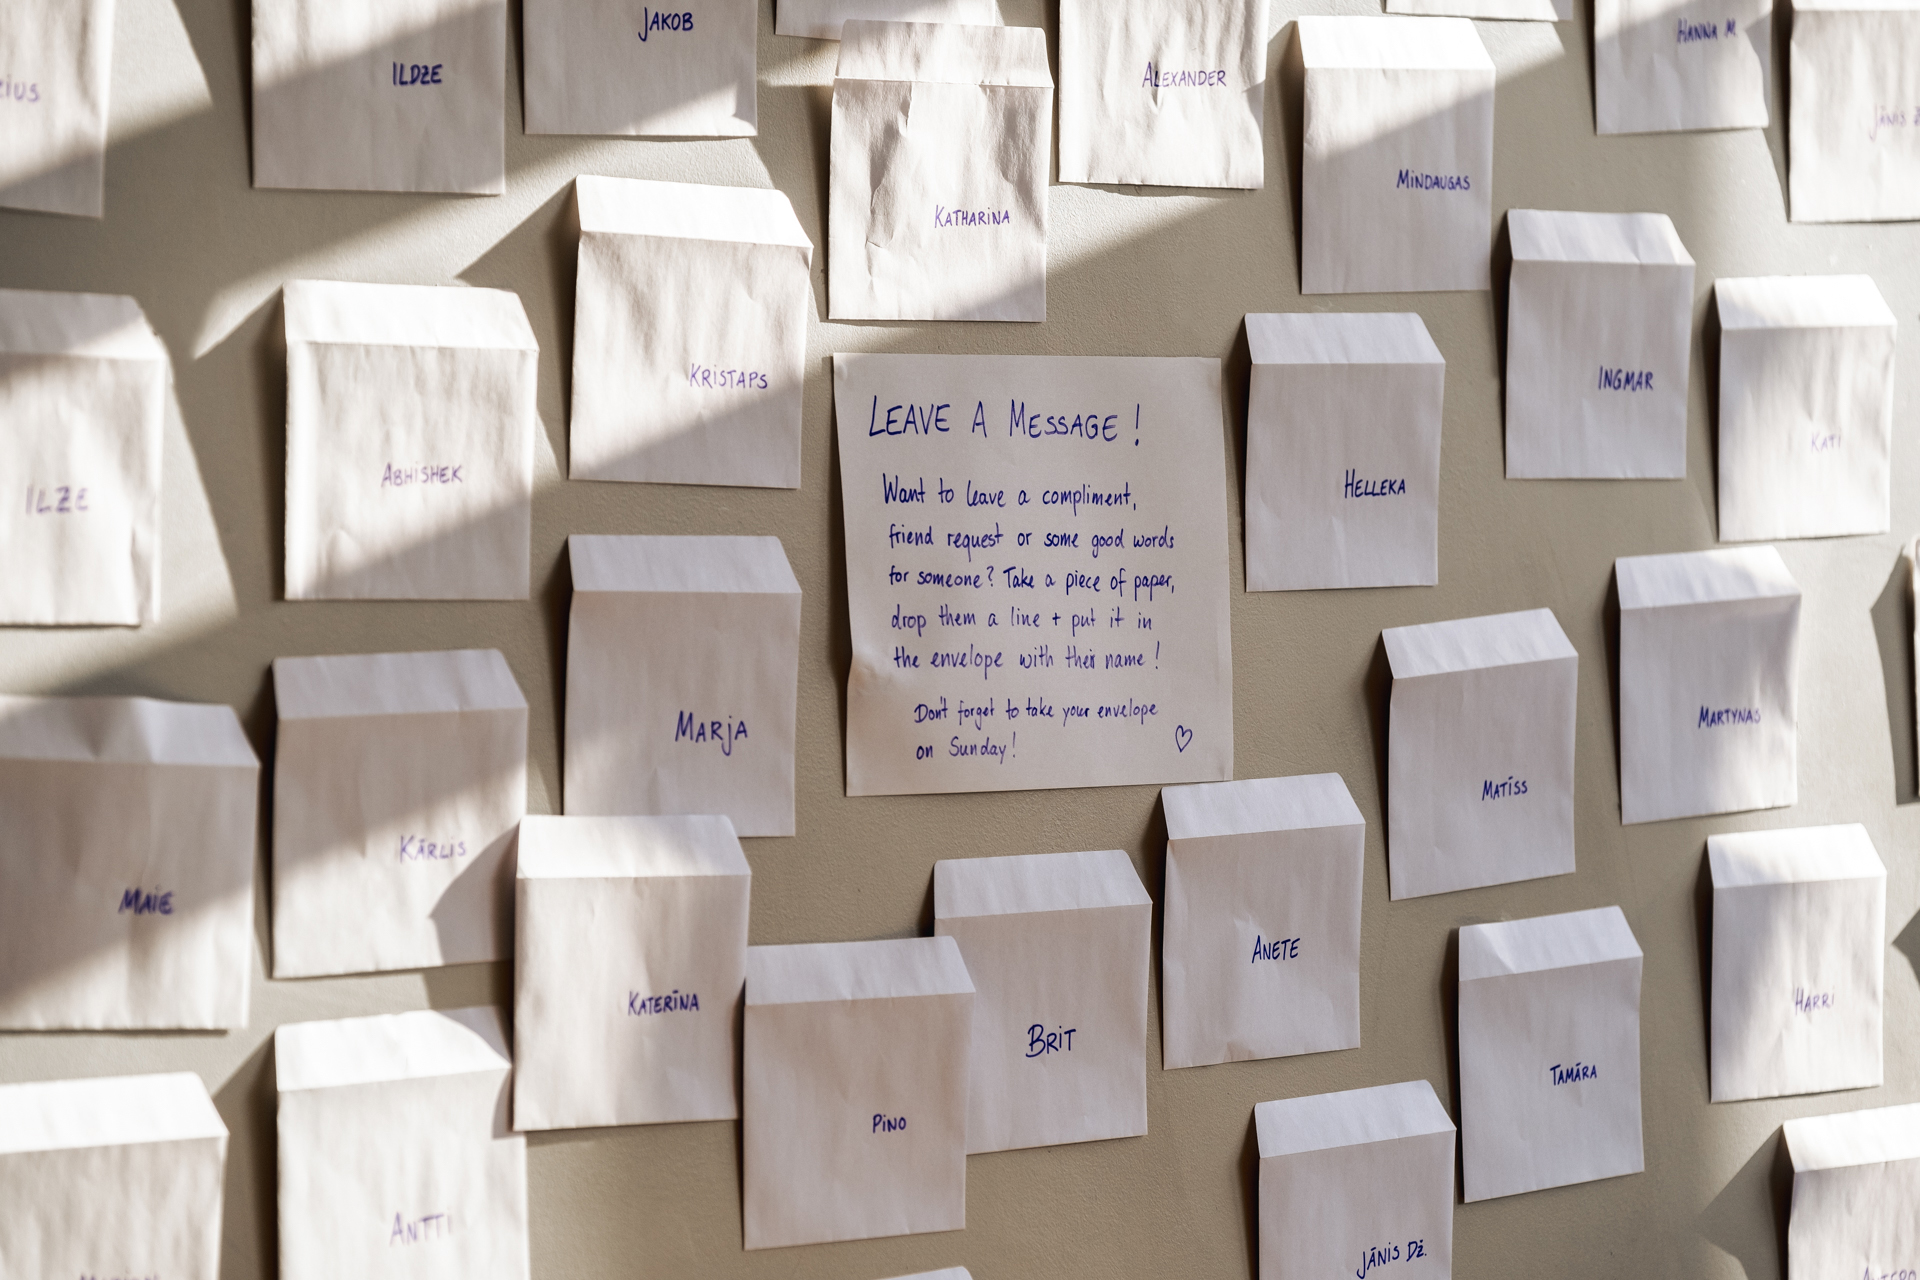 JAKOB
ILDZE
ALEXANDER
HANNA M
KATHARINA
MINDAUGAS
KRISTAPS
INGMAR
KATI
ABHISHEK
ILZE
HELLEKA
LEAVE A MESSAGE!
Want to leave a compliment,
friend request or some good words
for someone? Take a piece of paper,
drop them a line + put it in
the envelope with their name!
Don't forget to take your envelope
on Sunday! ♡
MARJA
MARTYNAS
MATĪSS
KĀRLIS
MAIE
KATERĪNA
ANETE
BRIT
PINO
TAMĀRA
HARRI
ANTTI
JĀNIS DŽ.